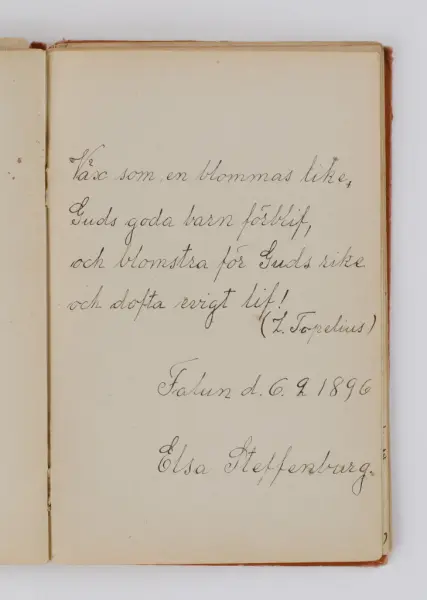 Väx som en blommas like,
Guds goda barn förblif,
och blomstra för Guds rike
och dofta evigt lif!
(Z. Topelius)
Falun d. 6. 2 1896
Elsa Steffenburg.